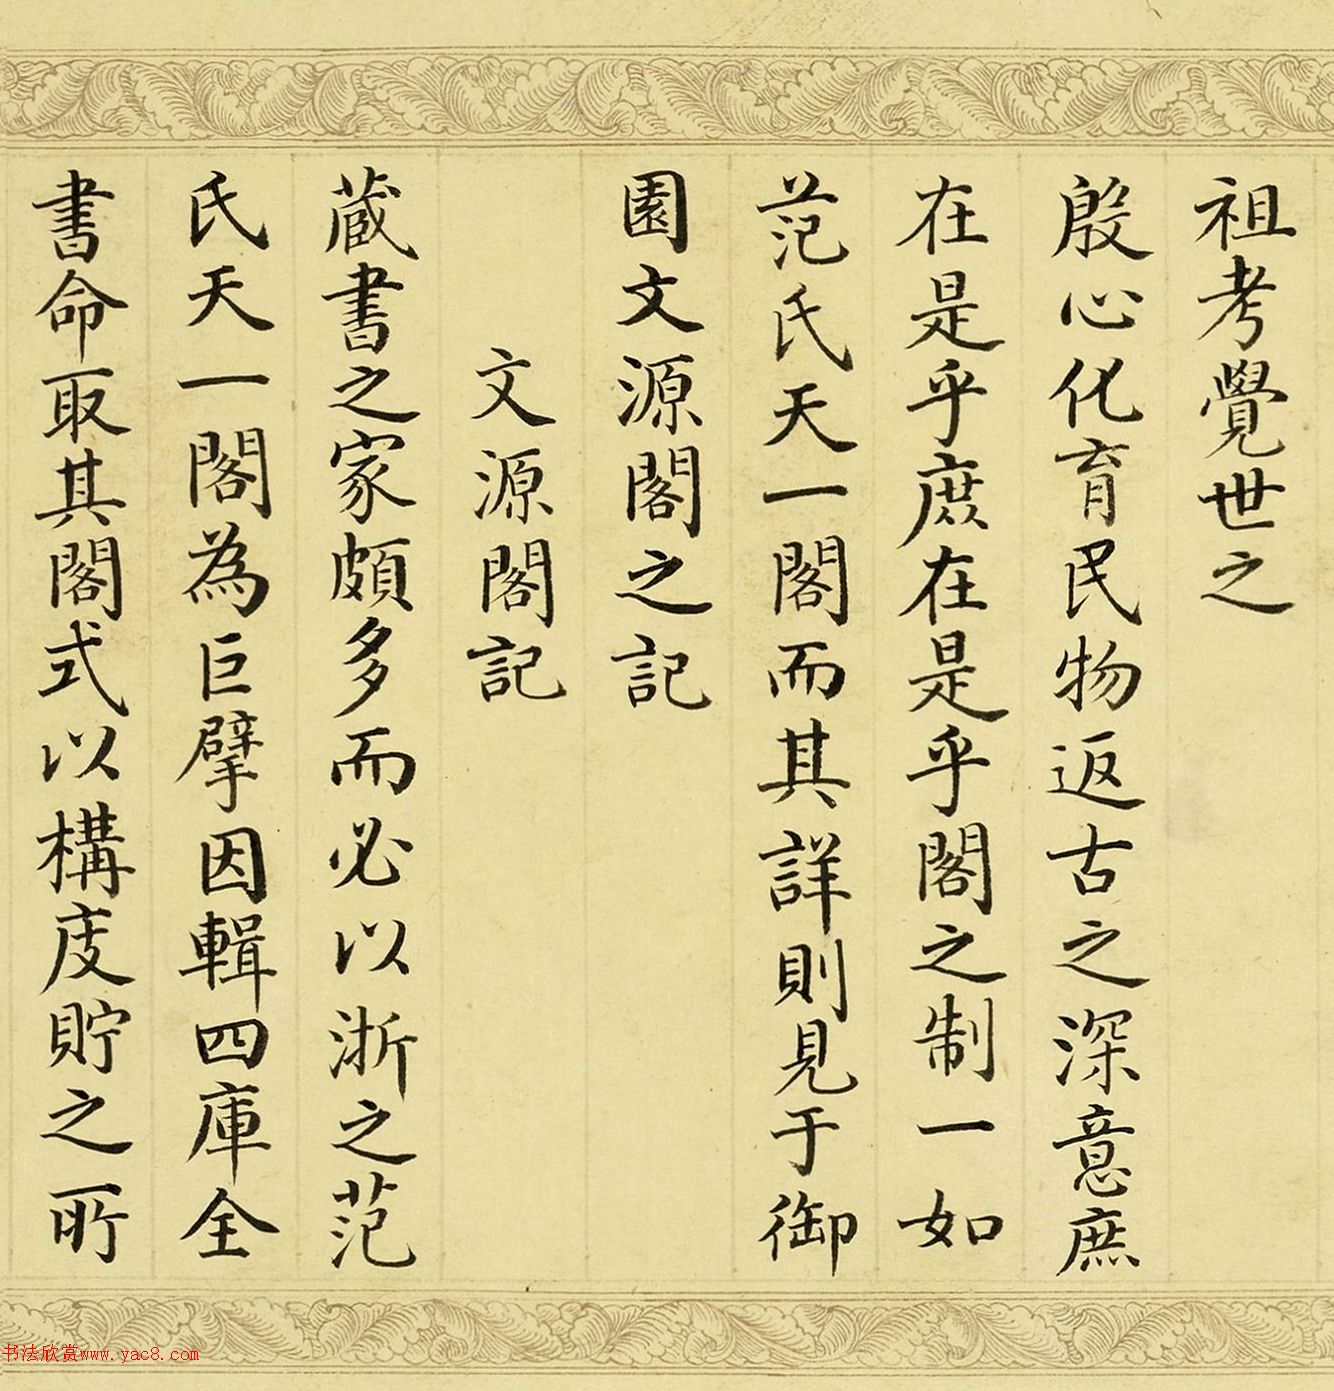 祖考覺世之
殷心化育民物返古之深意庶
在是乎庶在是乎閣之制一如
范氏天一閣而其詳則見于御
園文源閣之記
文源閣記
藏書之家頗多而必以浙之范
氏天一閣為巨擘因輯四庫全
書命取其閣式以構庋貯之所
书法欣赏www.yac8.com